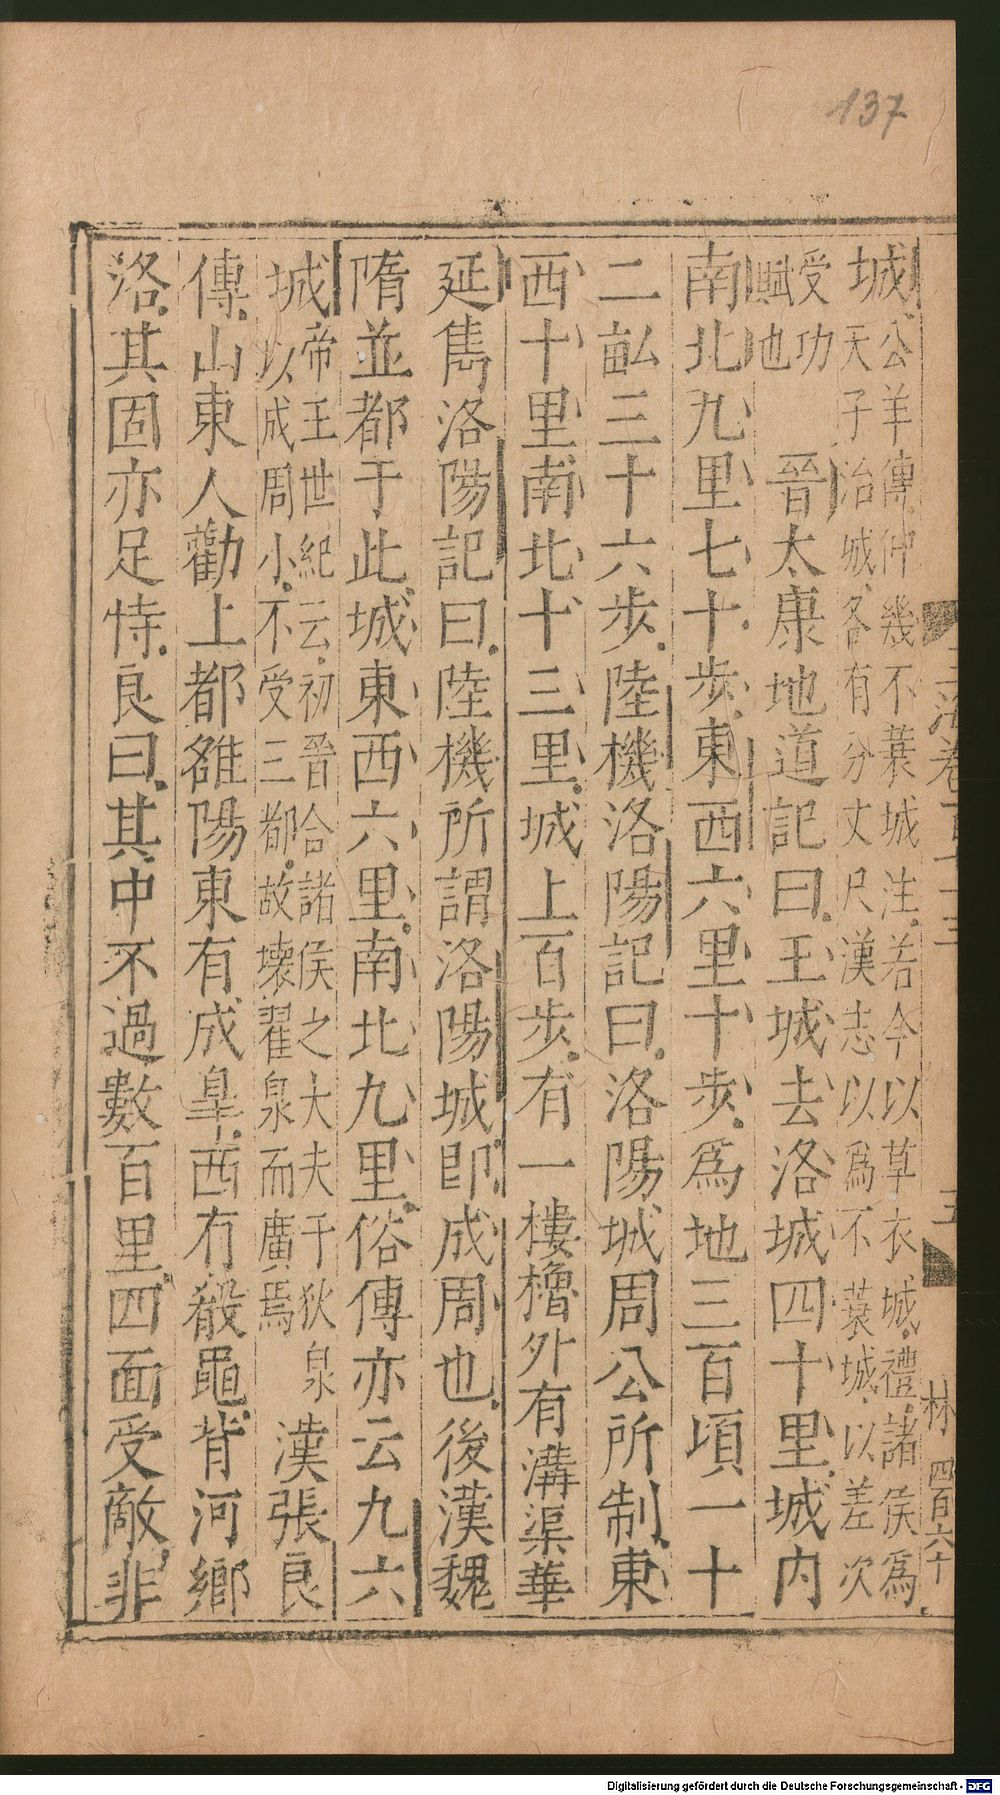 137
城公羊傳仲幾不蓑城注若今以草衣城禮諸侯爲
天子治城各有分丈尺漢志以爲不蓑城以差次
受功
賦也
晉太康地道記曰王城去洛城四十里城内
南北九里七十步東西六里十步爲地三百頃一十
二畝三十六步陸機洛陽記曰洛陽城周公所制東
西十里南北十三里城上百步有一樓櫓外有溝渠華
延雋洛陽記曰陸機所謂洛陽城即成周也後漢魏
隋並都于此城東西六里南北九里俗傳亦云九六
城帝王世紀云初晉合諸侯之大夫于狄泉
以成周小不受三都故壞翟泉而廣焉
漢張良
傳山東人勸上都雒陽東有成皐西有殽黽背河鄉
洛其固亦足恃良曰其中不過數百里四面受敵非
卷百七十三
五
林 四百六十
Digitalisierung gefördert durch die Deutsche Forschungsgemeinschaft - DFG